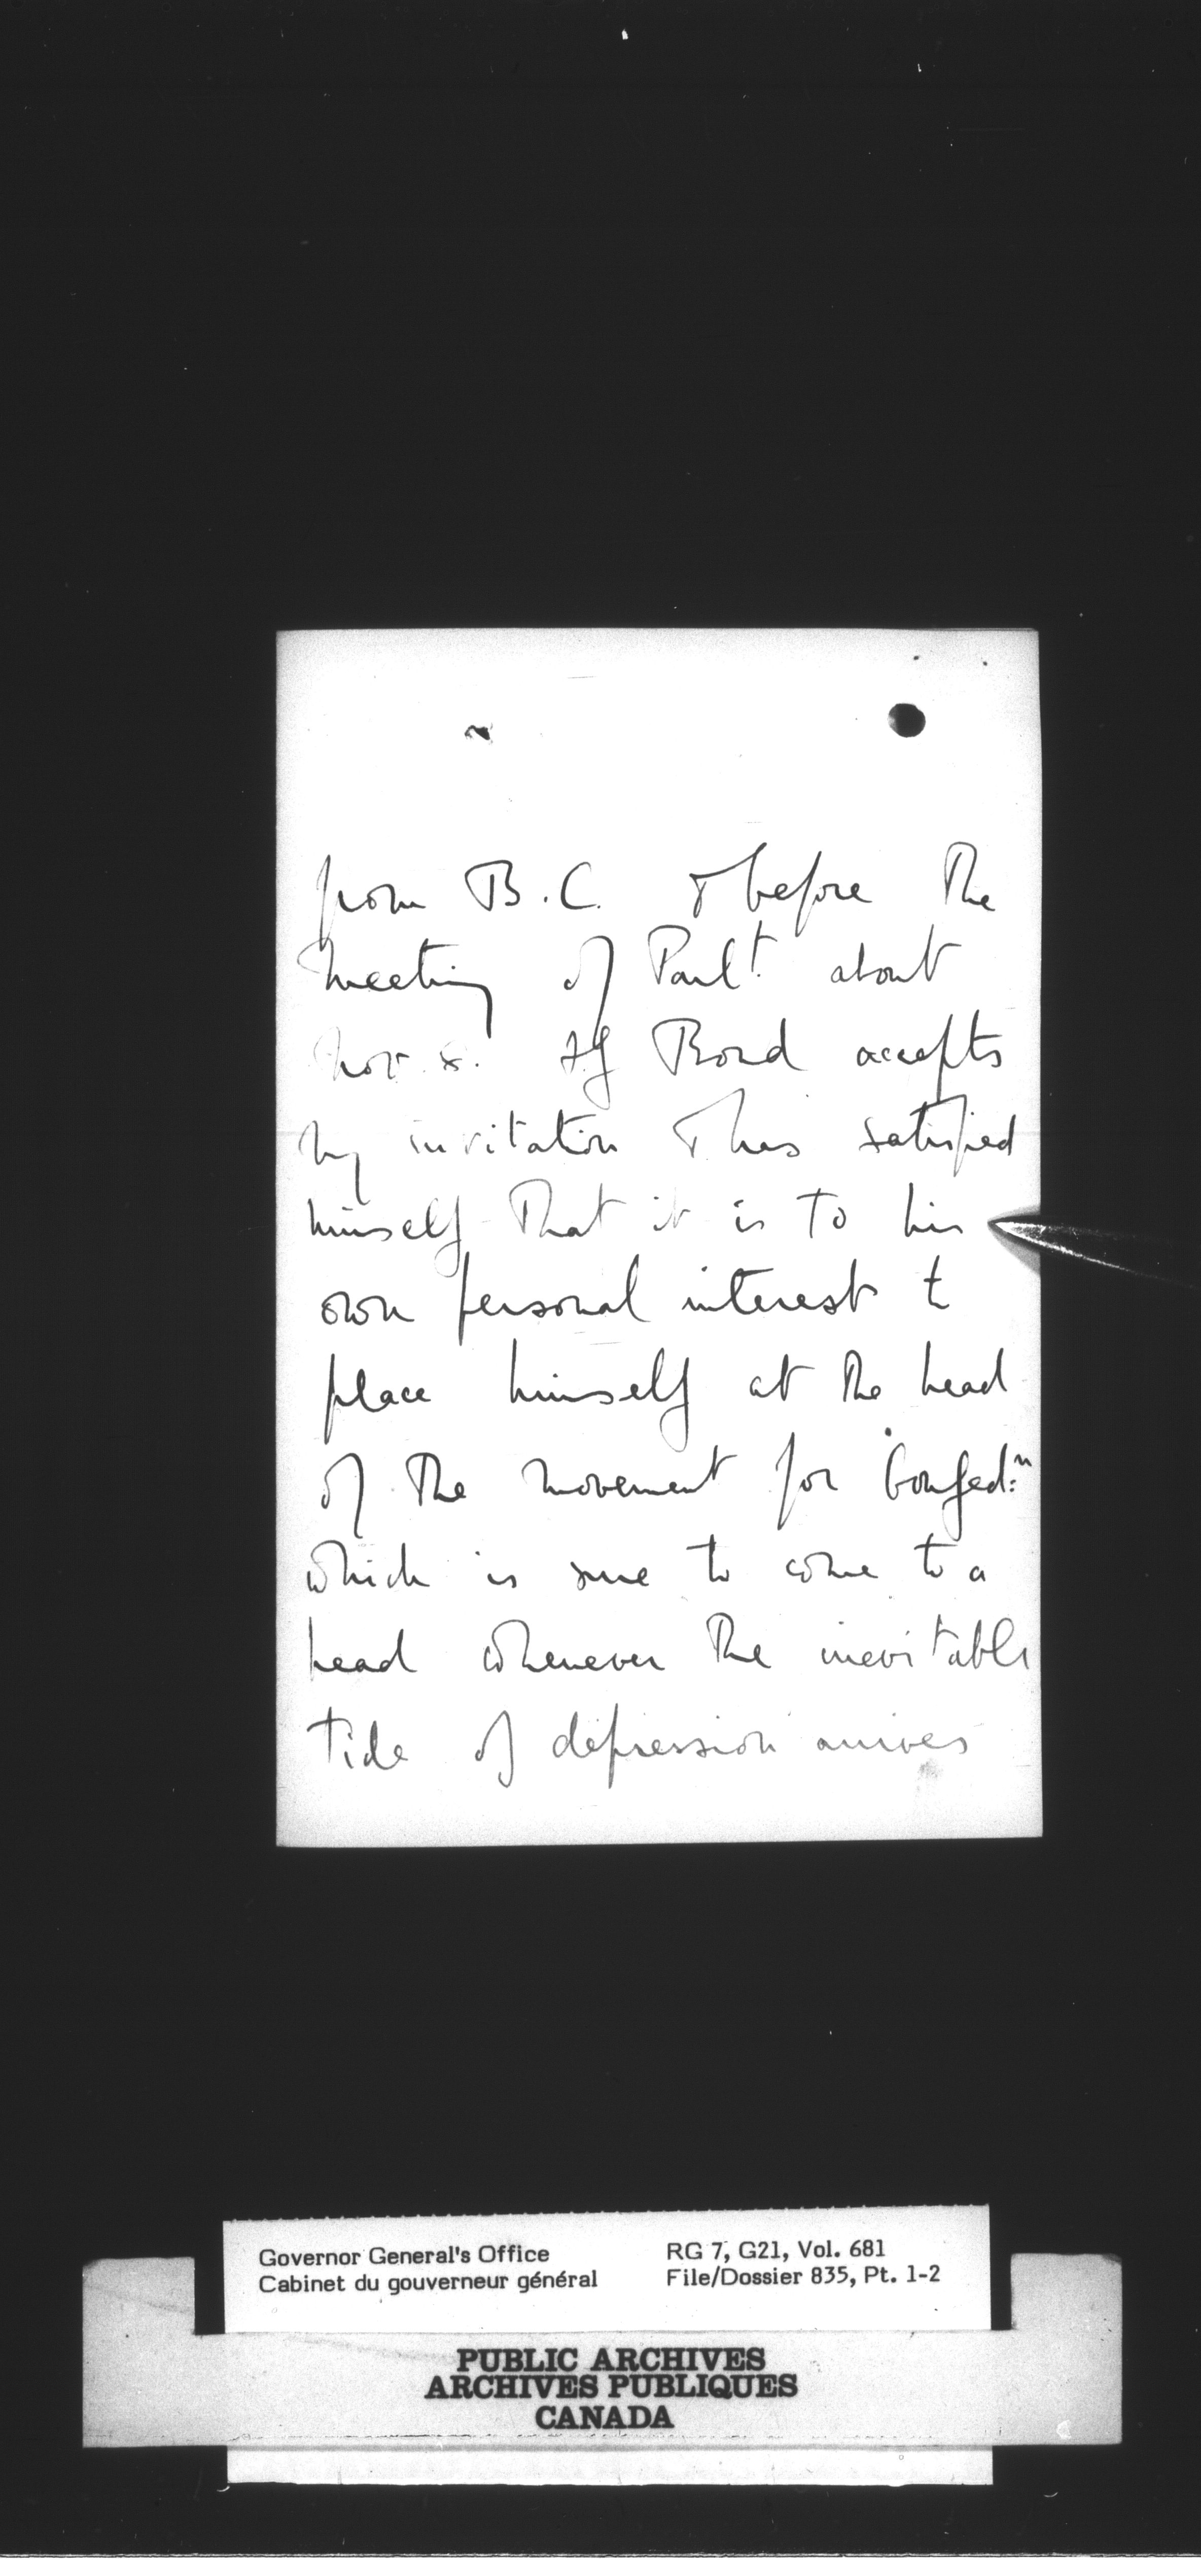 from B.C. & before the
meeting of Parlt. about
Nov. 8. If Bond accepts
my invitation & has satisfied
himself that it is to his
own personal interest to
place himself at the head
of the movement for Confedn
which is sure to come to a
head whenever the inevitable
tide of depression arrives
Governor General's Office
Cabinet du gouverneur général
RG 7, G21, Vol. 681
File/Dossier 835, Pt. 1-2
PUBLIC ARCHIVES
ARCHIVES PUBLIQUES
CANADA